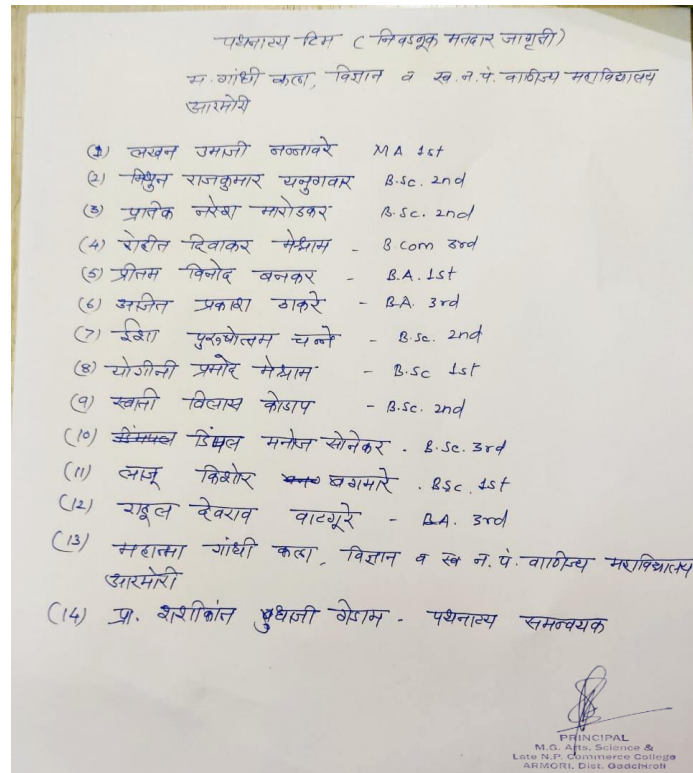 पथनाट्य टिम ( निवडणूक मतदार जागृती)
म. गांधी कला, विज्ञान व स्व. न. पं. वाणिज्य महाविद्यालय
आरमोरी
(1) लखन उमाजी नन्नावरे MA 1st
(2) मिथुन राजकुमार यनुगवार B.Sc. 2nd
(3) प्रतिक नरेश मारोडकर B.Sc. 2nd
(4) रोहीत दिवाकर मेश्राम - B.com 3rd
(5) प्रीतम विनोद बनकर - B.A. 1st
(6) अजित प्रकाश ठाकरे - B.A. 3rd
(7) ईशा पुरुषोत्तम चन्ने - B.Sc. 2nd
(8) योगीनी प्रमोद मेश्राम - B.Sc 1st
(9) स्वाती विलास कोडाप - B.Sc. 2nd
(10) डिंपल मनोज सोनेकर . B.Sc. 3rd
(11) लाजू किशोर बगमारे . BSc. 1st
(12) राहूल देवराव वाटगूरे - B.A. 3rd
(13) महात्मा गांधी कला, विज्ञान व स्व न. पं. वाणिज्य महाविद्यालय
आरमोरी
(14) प्रा. शशीकांत बुधाजी गेडाम - पथनाट्य समन्वयक
PRINCIPAL
M.G. Arts, Science &
Late N.P. Commerce College
ARMORI, Dist. Gadchiroli